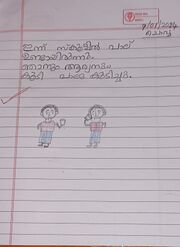 9/01/2024
ചൊവ്വ
ഇന്ന് സ്കൂളിൽ പാല്
ഉണ്ടായിരുന്നു.
ഞാനും ആര്യനും
കൂടി പാല് കുടിച്ചു.